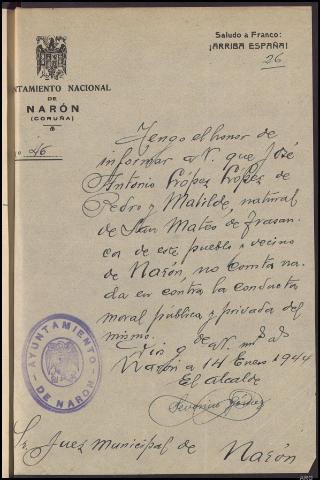 Saludo a Franco:
¡ARRIBA ESPAÑA!
26
NTAMIENTO NACIONAL
DE
NARÓN
(CORUÑA)
o 26
Tengo el honor de
informar a V. que José
Antonio López López de
Pedro y Matilde, natural
de San Mateo de Trasan-
cos de este pueblo y vecino
de Narón, no consta na-
da en contra la conducta
moral pública y privada del
mismo.
Dios g de a V. m a
Narón a 14 Enero 1944
El alcalde
AYUNTAMIENTO
DE NARÓN
Sr. Juez Municipal de Narón